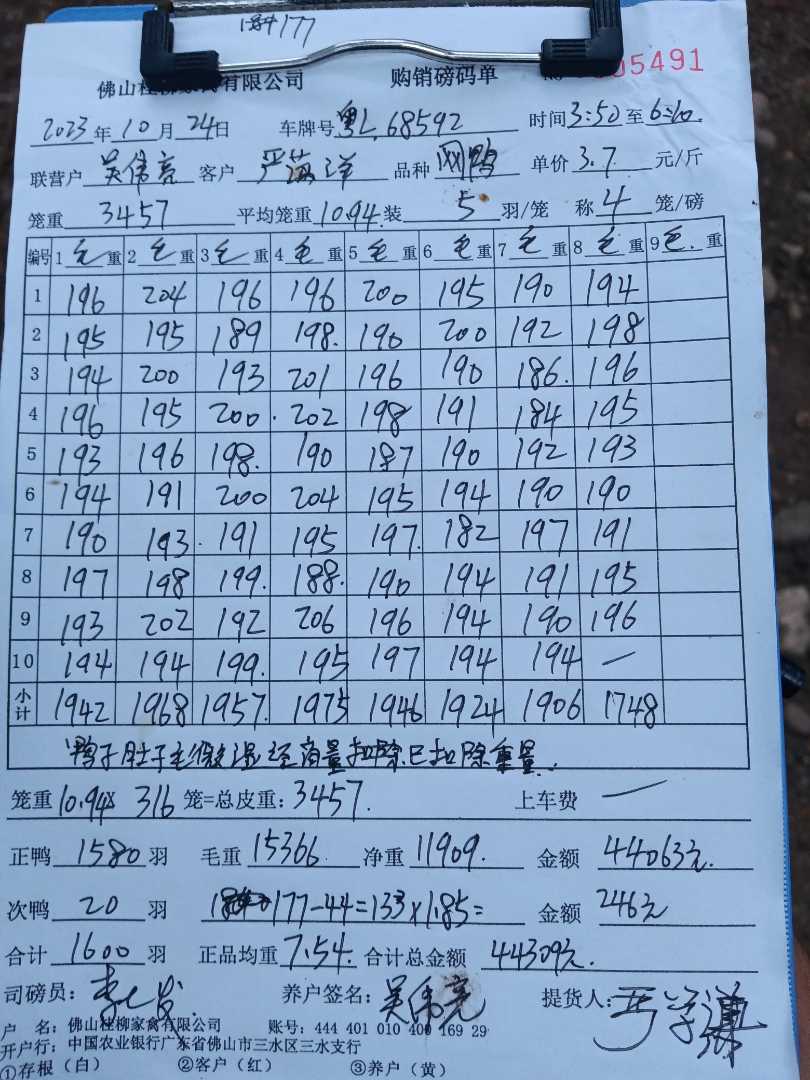 184177
佛山桂柳家禽有限公司 购销磅码单 No 005491
2023年10月24日 车牌号粤L.68592 时间3:50至6:10.
联营户吴伟亮客户 严海洋 品种 网鸭 单价3.7 元/斤
笼重 3457 平均笼重10.94.装 5 羽/笼 称 4 笼/磅
编号 1毛重 2毛重 3毛重 4毛重 5毛重 6毛重 7毛重 8毛重 9毛.重
1 196 204 196 196 200 195 190 194
2 195 195 189 198. 190 200 192 198
3 194 200 193 201 196 190 186. 196
4 196 195 200. 202 198 191 184 195
5 193 196 198. 190 187 190 192 193
6 194 191 200 204 195 194 190 190
7 190 193. 191 195 197. 182 197 191
8 197 198 199. 188. 190 194 191 195
9 193 202 192 206 196 194 190 196
10 194 194 199. 195 197 194 194 —
小计 1942 1968 1957. 1975 1946 1924 1906 1748
鸭子肚子毛微湿经商量扣除已扣除重量.
笼重10.94x 316 笼=总皮重: 3457. 上车费 —
正鸭 1580 羽 毛重 15366 净重 11909. 金额 44063元.
次鸭 20 羽 177-44=133x1.85= 金额 246元
合计 1600 羽 正品均重 7.54. 合计总金额 44309元.
司磅员: 养户签名: 吴伟亮 提货人:
户 名: 佛山桂柳家禽有限公司 账号: 444 401 010 400 169 29
开户行: 中国农业银行广东省佛山市三水区三水支行
①存根(白) ②客户(红) ③养户(黄)